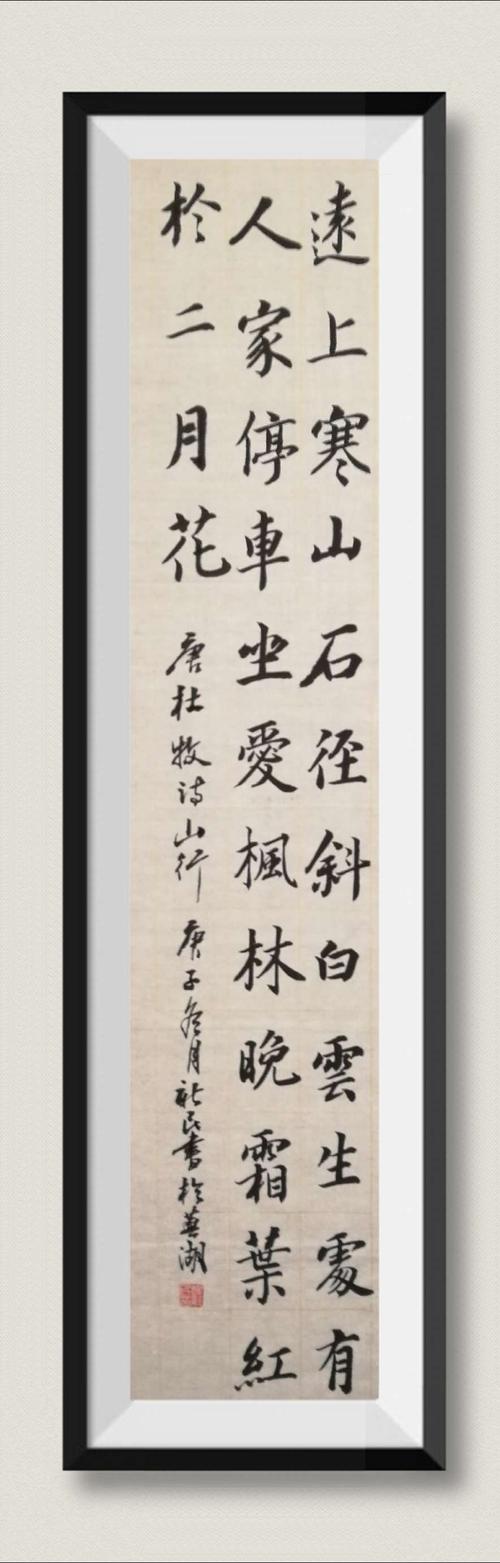 遠上寒山石徑斜白雲生處有
人家停車坐愛楓林晚霜葉紅
於二月花
唐杜牧诗山行 庚子冬月社民書於蕪湖